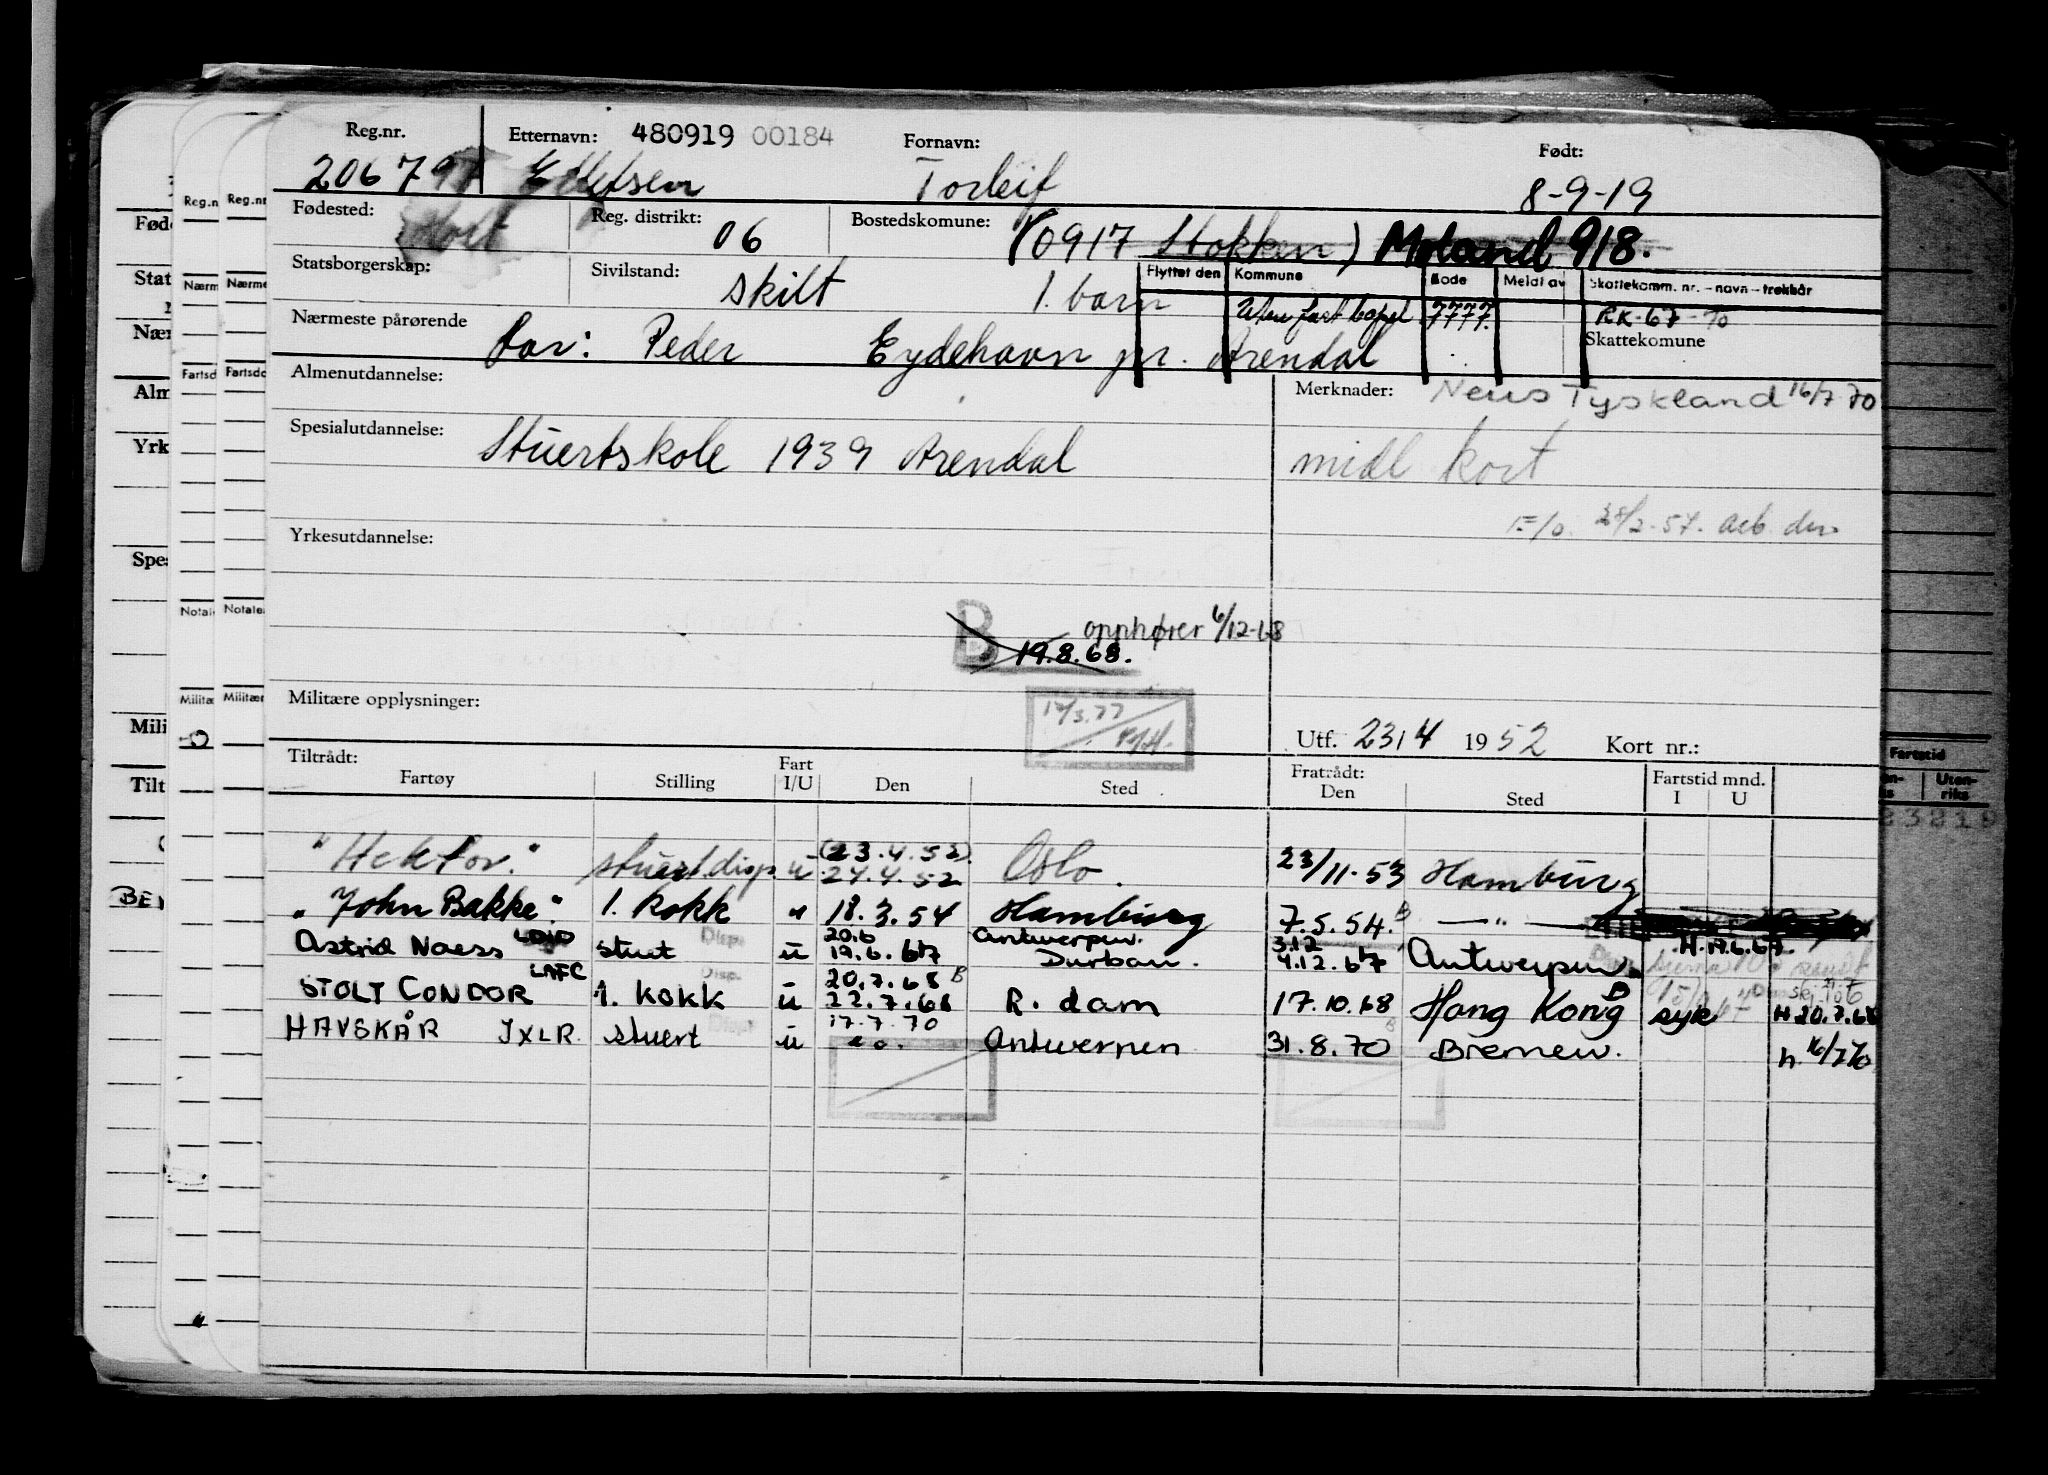 Reg.nr. Etternavn: 480919 00184 Fornavn: Født:
20679 Ellefsen Torleif 8-9-19
Fødested: Reg. distrikt: 06 Bostedskomune: (0917 Stokken) Moland 918.
Statsborgerskap: Sivilstand: skilt 1. barn Flyttet den Kommune Kode Meldt av Skattekomm. nr. – navn – trekkår
Uten fast bopel 7777. RK-67-70
Nærmeste pårørende far: Peder Eydehavn pr. Arendal Skattekomune
Almenutdannelse: Merknader: Neuss Tyskland 16/7 70
Spesialutdannelse: Stuertskole 1939 Arendal midl kort
F/o. 28/2-57. arb. den
Yrkesutdannelse:
B opphører 6/12-68
19.8.68.
Militære opplysninger: 17/3.77
Utf. 23/4 1952 Kort nr.:
Tiltrådt: Fart Fratrådt: Fartstid mnd.
Fartøy Stilling I/U Den Sted Den Sted I U
"Hektor." stuert disp. u (23.4.52) 24.4.52 Oslo. 23/11-53 Hamburg
"John Bakke". 1. kokk " 18.3.54 Hamburg 7.5.54. B — " —
Astrid Naess LDID stuert Disp. u 20.6 19.6.67 Antwerpen. Durban. 3.12 4.12.67 Antwerpen H.19.6.67.
STOLT CONDOR LAFC 1. kokk Disp. u 20.7.68 B 22.7.68 R. dam 17.10.68 Hong Kong B syk H.20.7.68
HAVSKÅR JXLR. stuert Disp. u 17.7.70 Antwerpen 31.8.70 B Bremen. h. 16/7 70